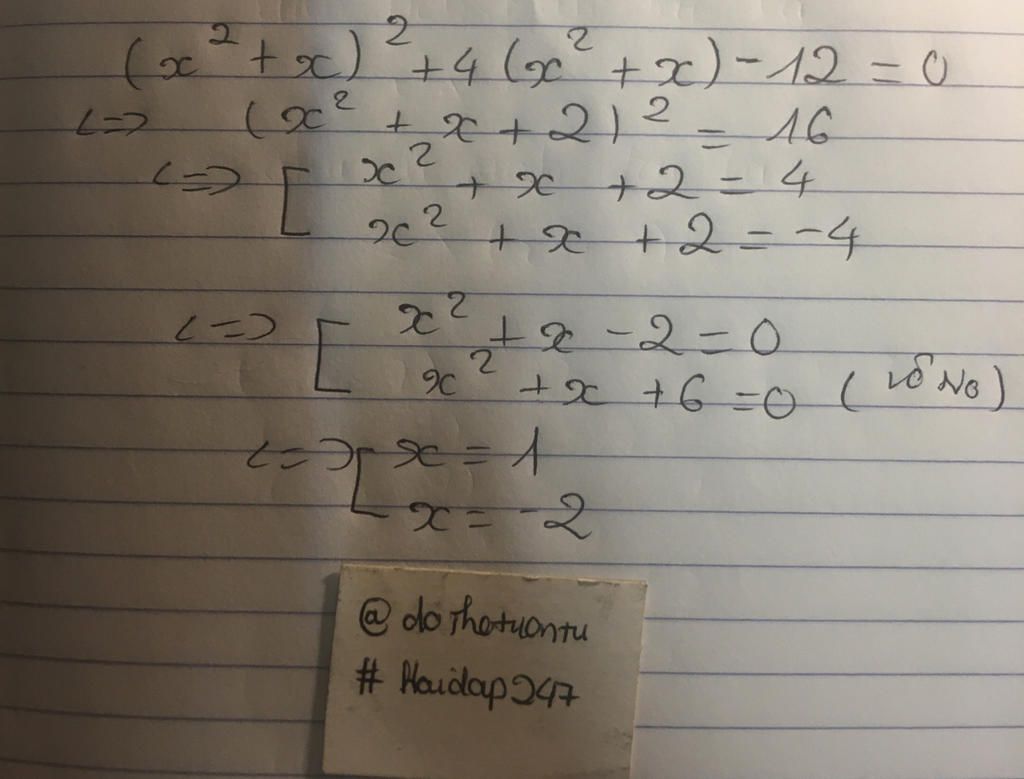 (x² + x)² + 4(x² + x) - 12 = 0
<=> (x² + x + 2)² = 16
<=> [ x² + x + 2 = 4
x² + x + 2 = -4
<=> [ x² + x - 2 = 0
x² + x + 6 = 0 (vô No)
<=> [ x = 1
x = -2
@dothotuontu
# Hoidap247